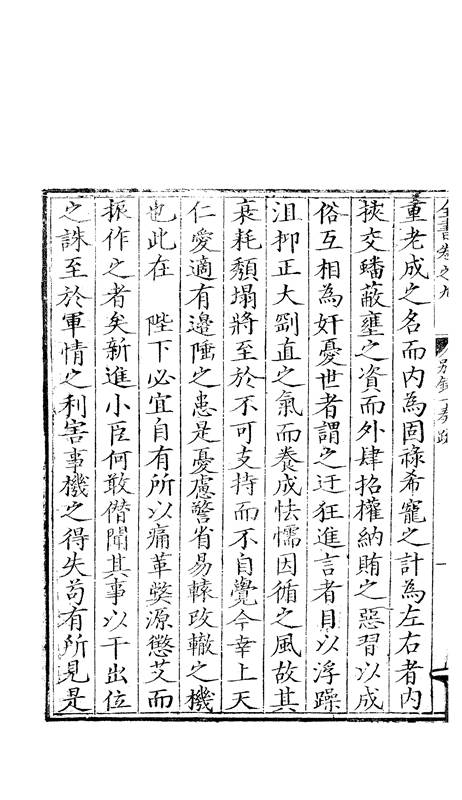 全書卷之九 別錄一奏疏 一
重老成之名而內為固祿希寵之計為左右者內
挾交蟠蔽壅之資而外肆招權納賄之惡習以成
俗互相為奸憂世者謂之迂狂進言者目以浮躁
沮抑正大剛直之氣而養成怯懦因循之風故其
衰耗頹塌將至於不可支持而不自覺今幸上天
仁愛適有邊陲之患是憂慮警省易轅改轍之機
也此在 陛下必宜自有所以痛革獘源懲艾而
振作之者矣新進小臣何敢僭聞其事以干出位
之誅至於軍情之利害事機之得失苟有所見是